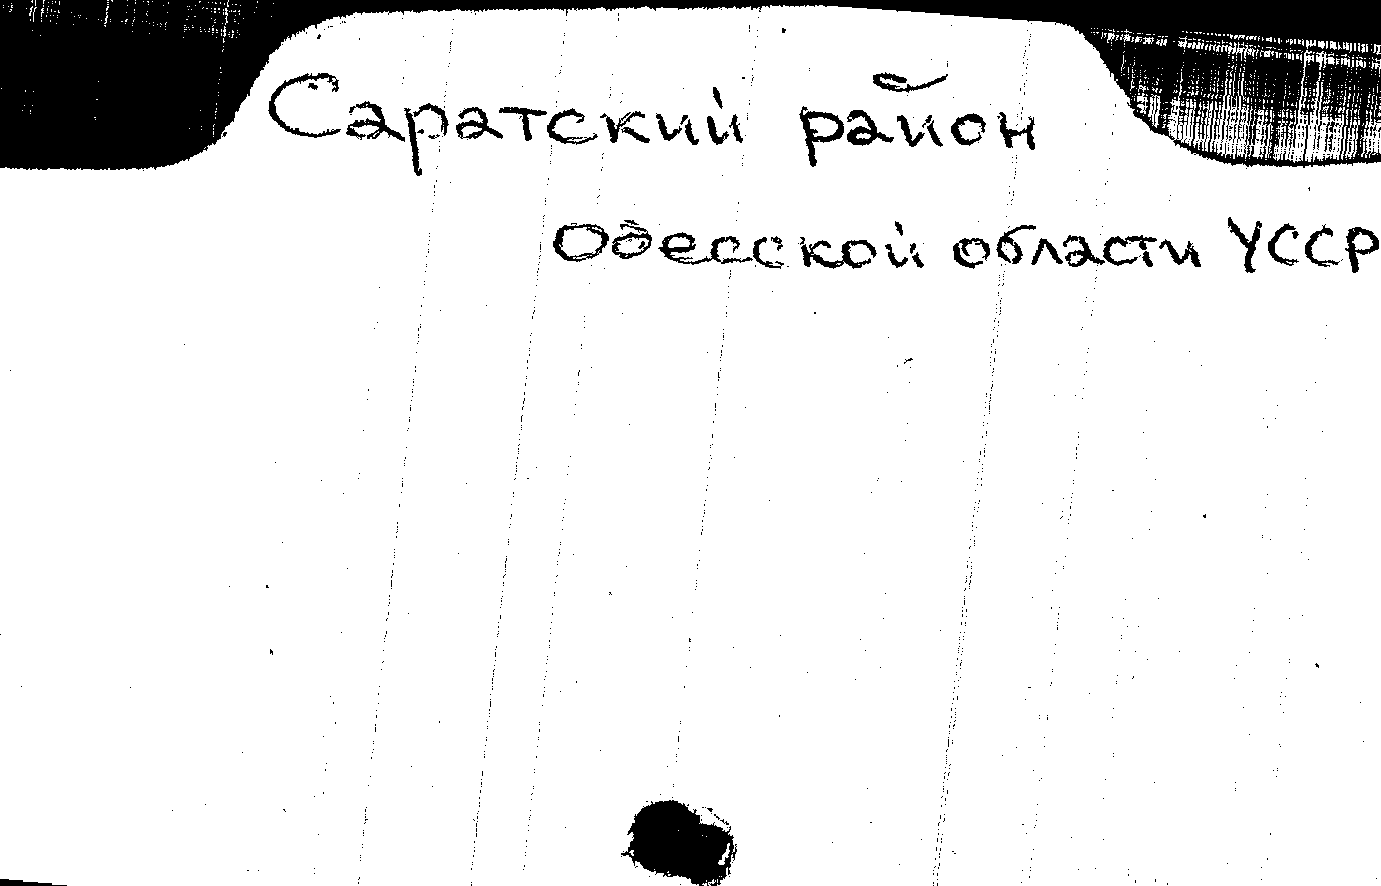 Саратский район
Одесской области УССР